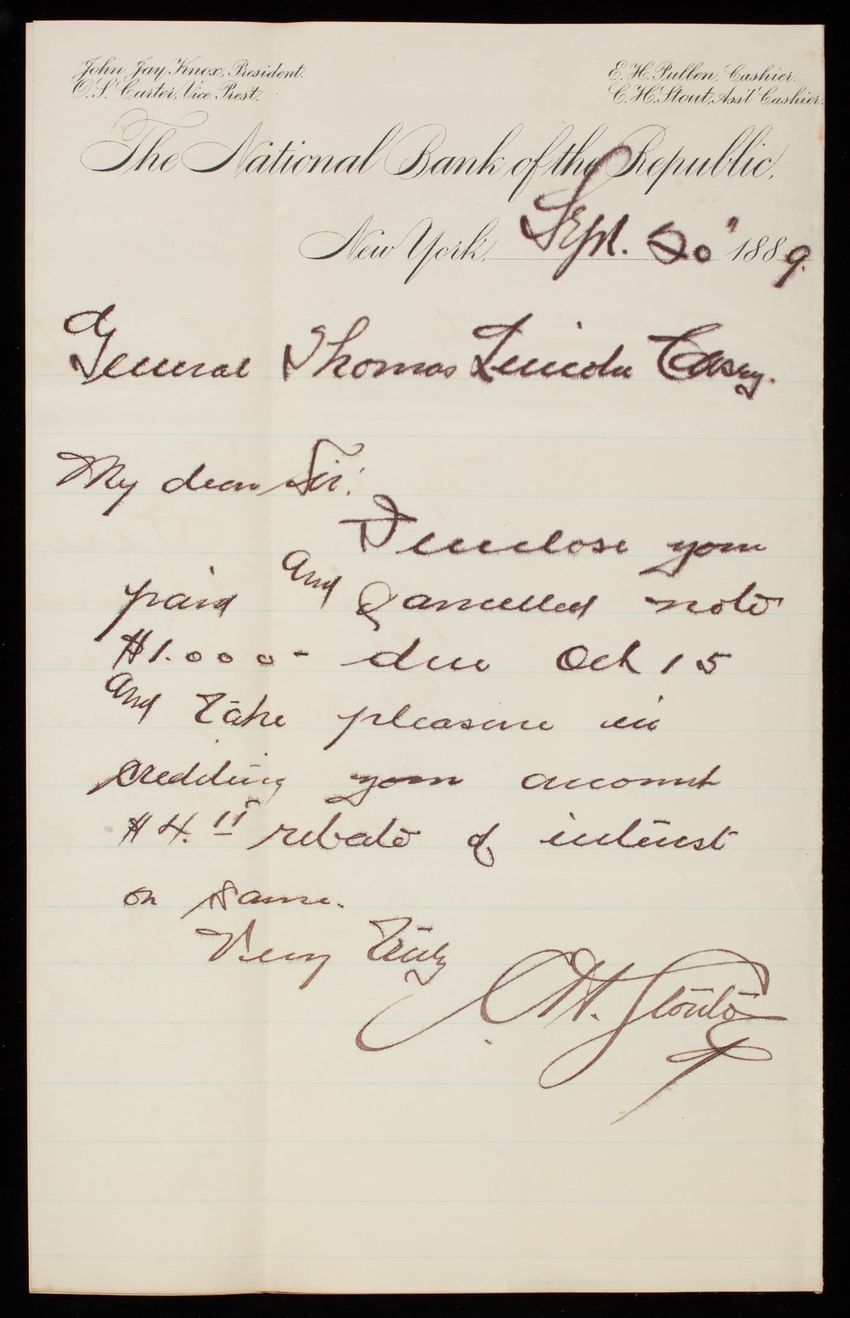 John Jay Knox, President.
O. S. Carter, Vice Prest.
E. H. Pullen, Cashier.
C. H. Stout, Ass't Cashier.
The National Bank of the Republic,
New York, Sept. 20" 1889.
General Thomas Lincoln Casey.
My dear Sir:
I enclose your
paid and cancelled note
$1.000- due Oct 15
and take pleasure in
crediting your account
$4.11 rebate of interest
on same.
Very Truly
C. H. Stout